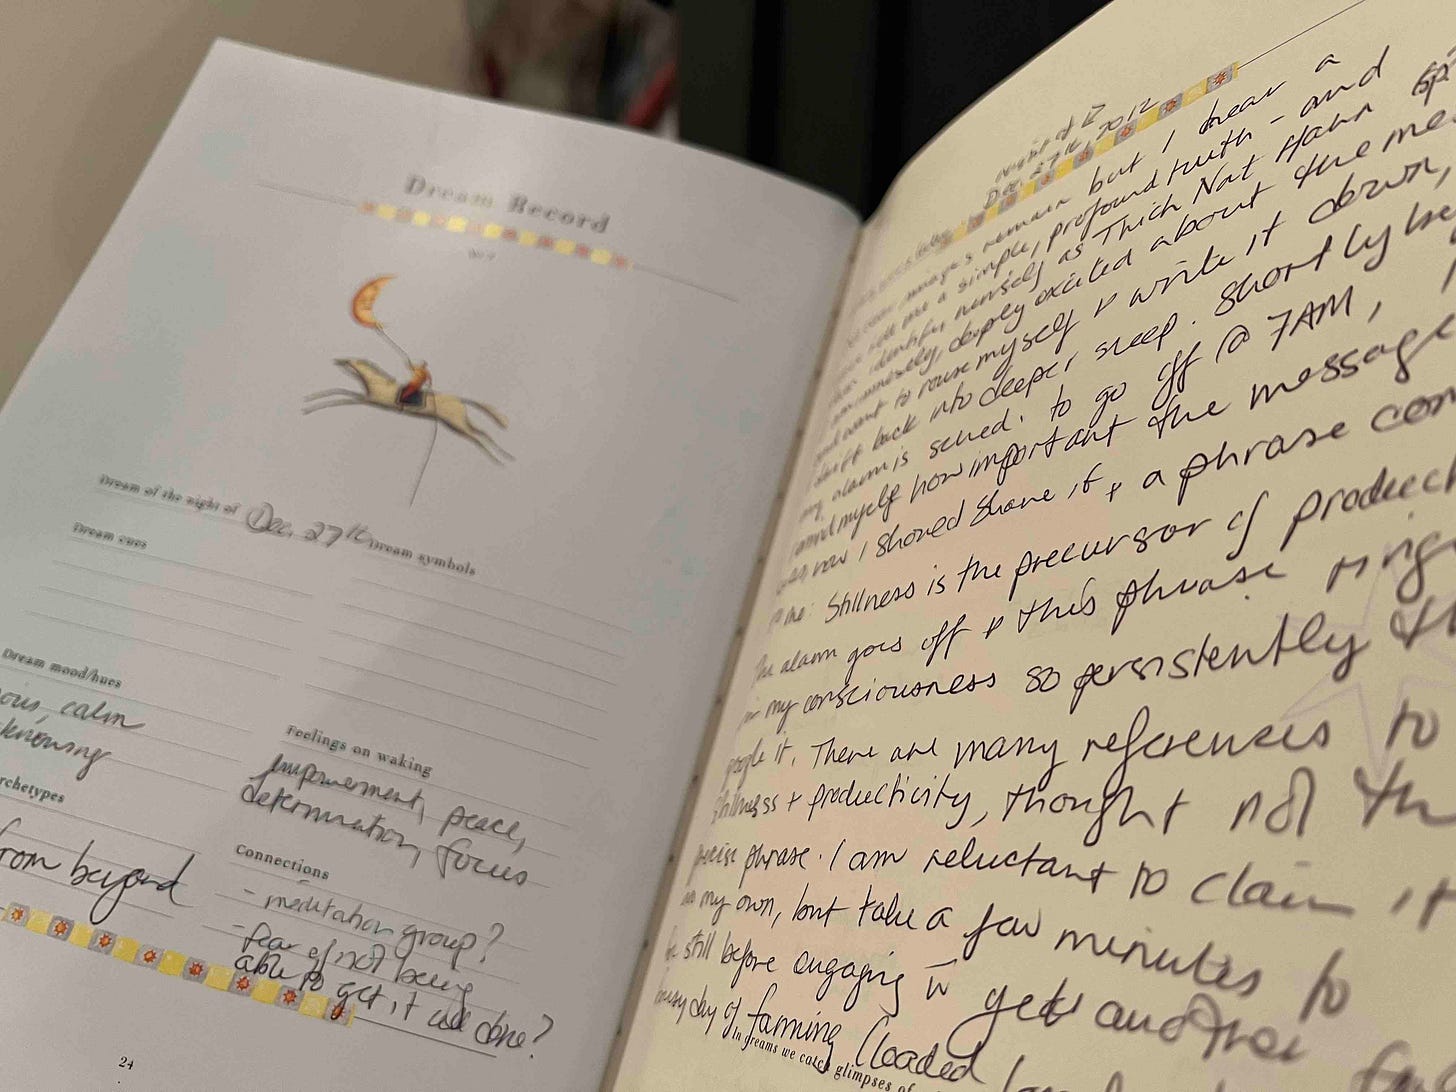 Dream Record
Dream of the night of Dec. 27th
Dream cues
Dream symbols
Dream mood/hues
calm
knowing
Feelings on waking
Empowerment, peace,
determination, focus
rchetypes
from beyond
Connections
- meditation group?
- fear of not being
able to get it all done?
24
night of
Dec. 27th, 2012
images remain but I hear a
me a simple, profound truth - and
identify himself as Thich Nat Hahn
immensely, deeply excited about the me
and want to rouse myself & write it down,
drift back into deeper sleep. Shortly be
my alarm is sched. to go off @ 7AM, I
remind myself how important the message
how I should share it & a phrase com
to me: Stillness is the precursor of product
The alarm goes off & this phrase rings
in my consciousness so persistently th
google it. There are many references to
stillness + productivity, thought not th
precise phrase. I am reluctant to claim it
as my own, but take a few minutes to
be still before engaging in yet another
day of farming (loaded
In dreams we catch glimpses of